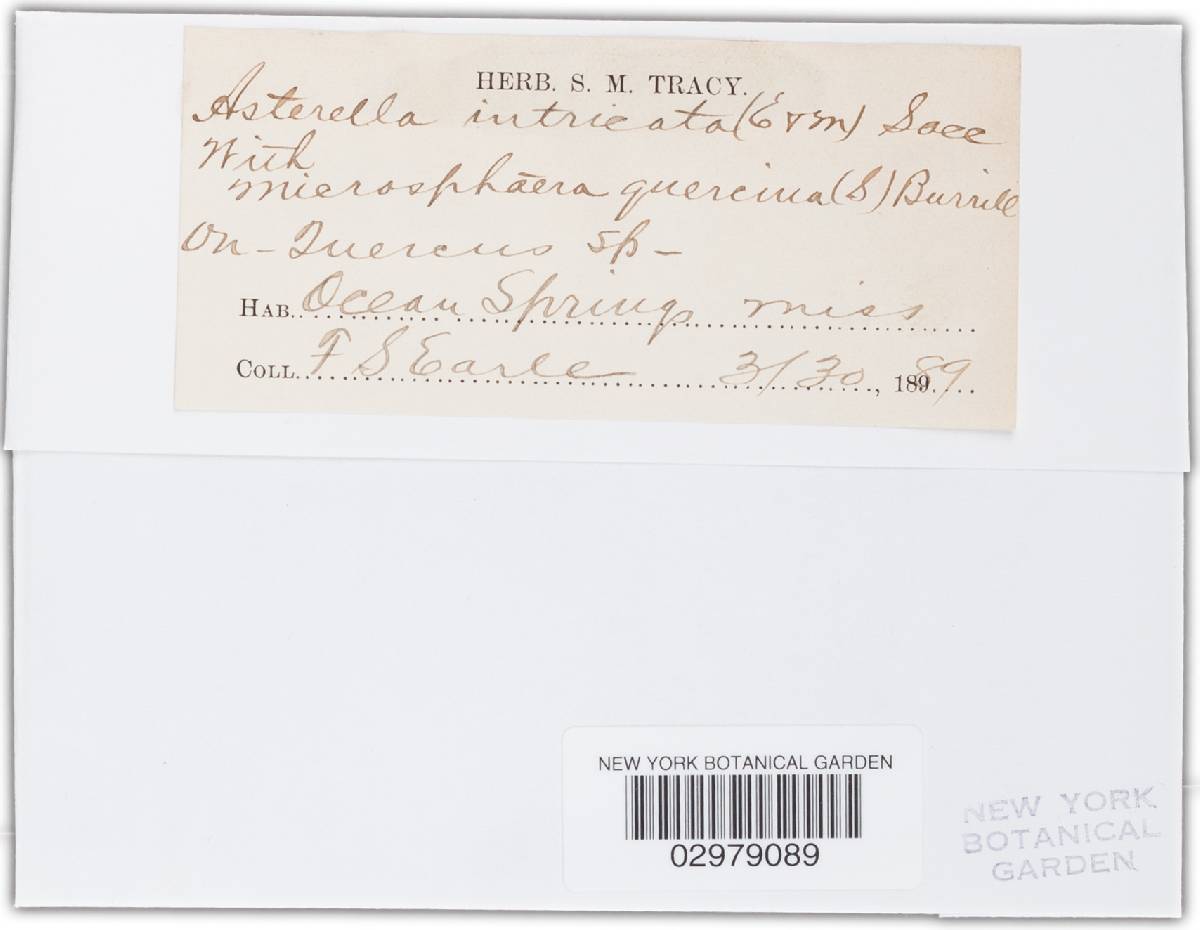 HERB. S. M. TRACY.
Asterella intricata (E & M) Sacc
With
Microsphaera quercina (S) Burrill
On - Quercus sp -
HAB. Ocean Springs Miss
COLL. F S Earle 3/30, 189 89
NEW YORK BOTANICAL GARDEN
02979089
NEW YORK
BOTANICAL
GARDEN